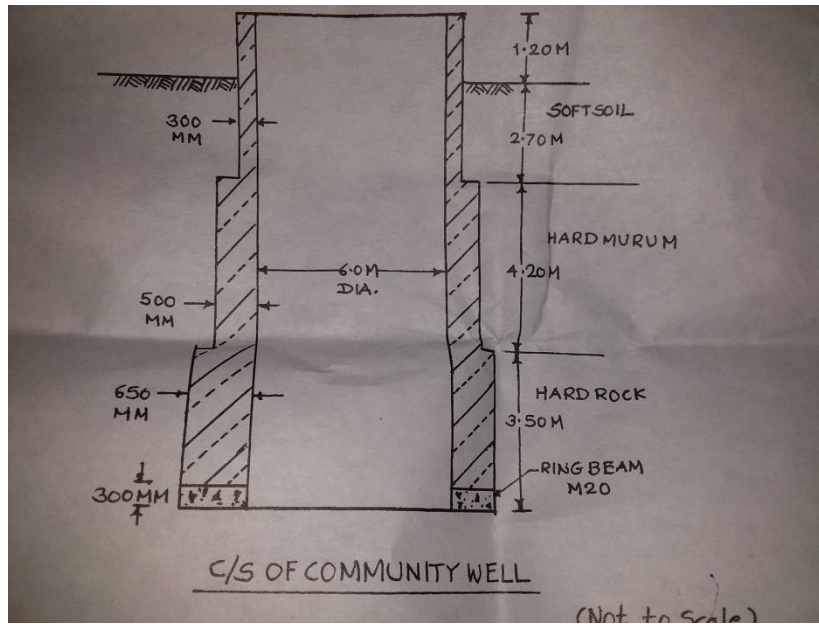 1.20M
SOFTSOIL
300
MM
2.70M
HARD MURUM
6.0M
DIA.
4.20M
500
MM
650
MM
HARD ROCK
3.50M
RING BEAM
M20
300MM
C/S OF COMMUNITY WELL
(Not to Scale)